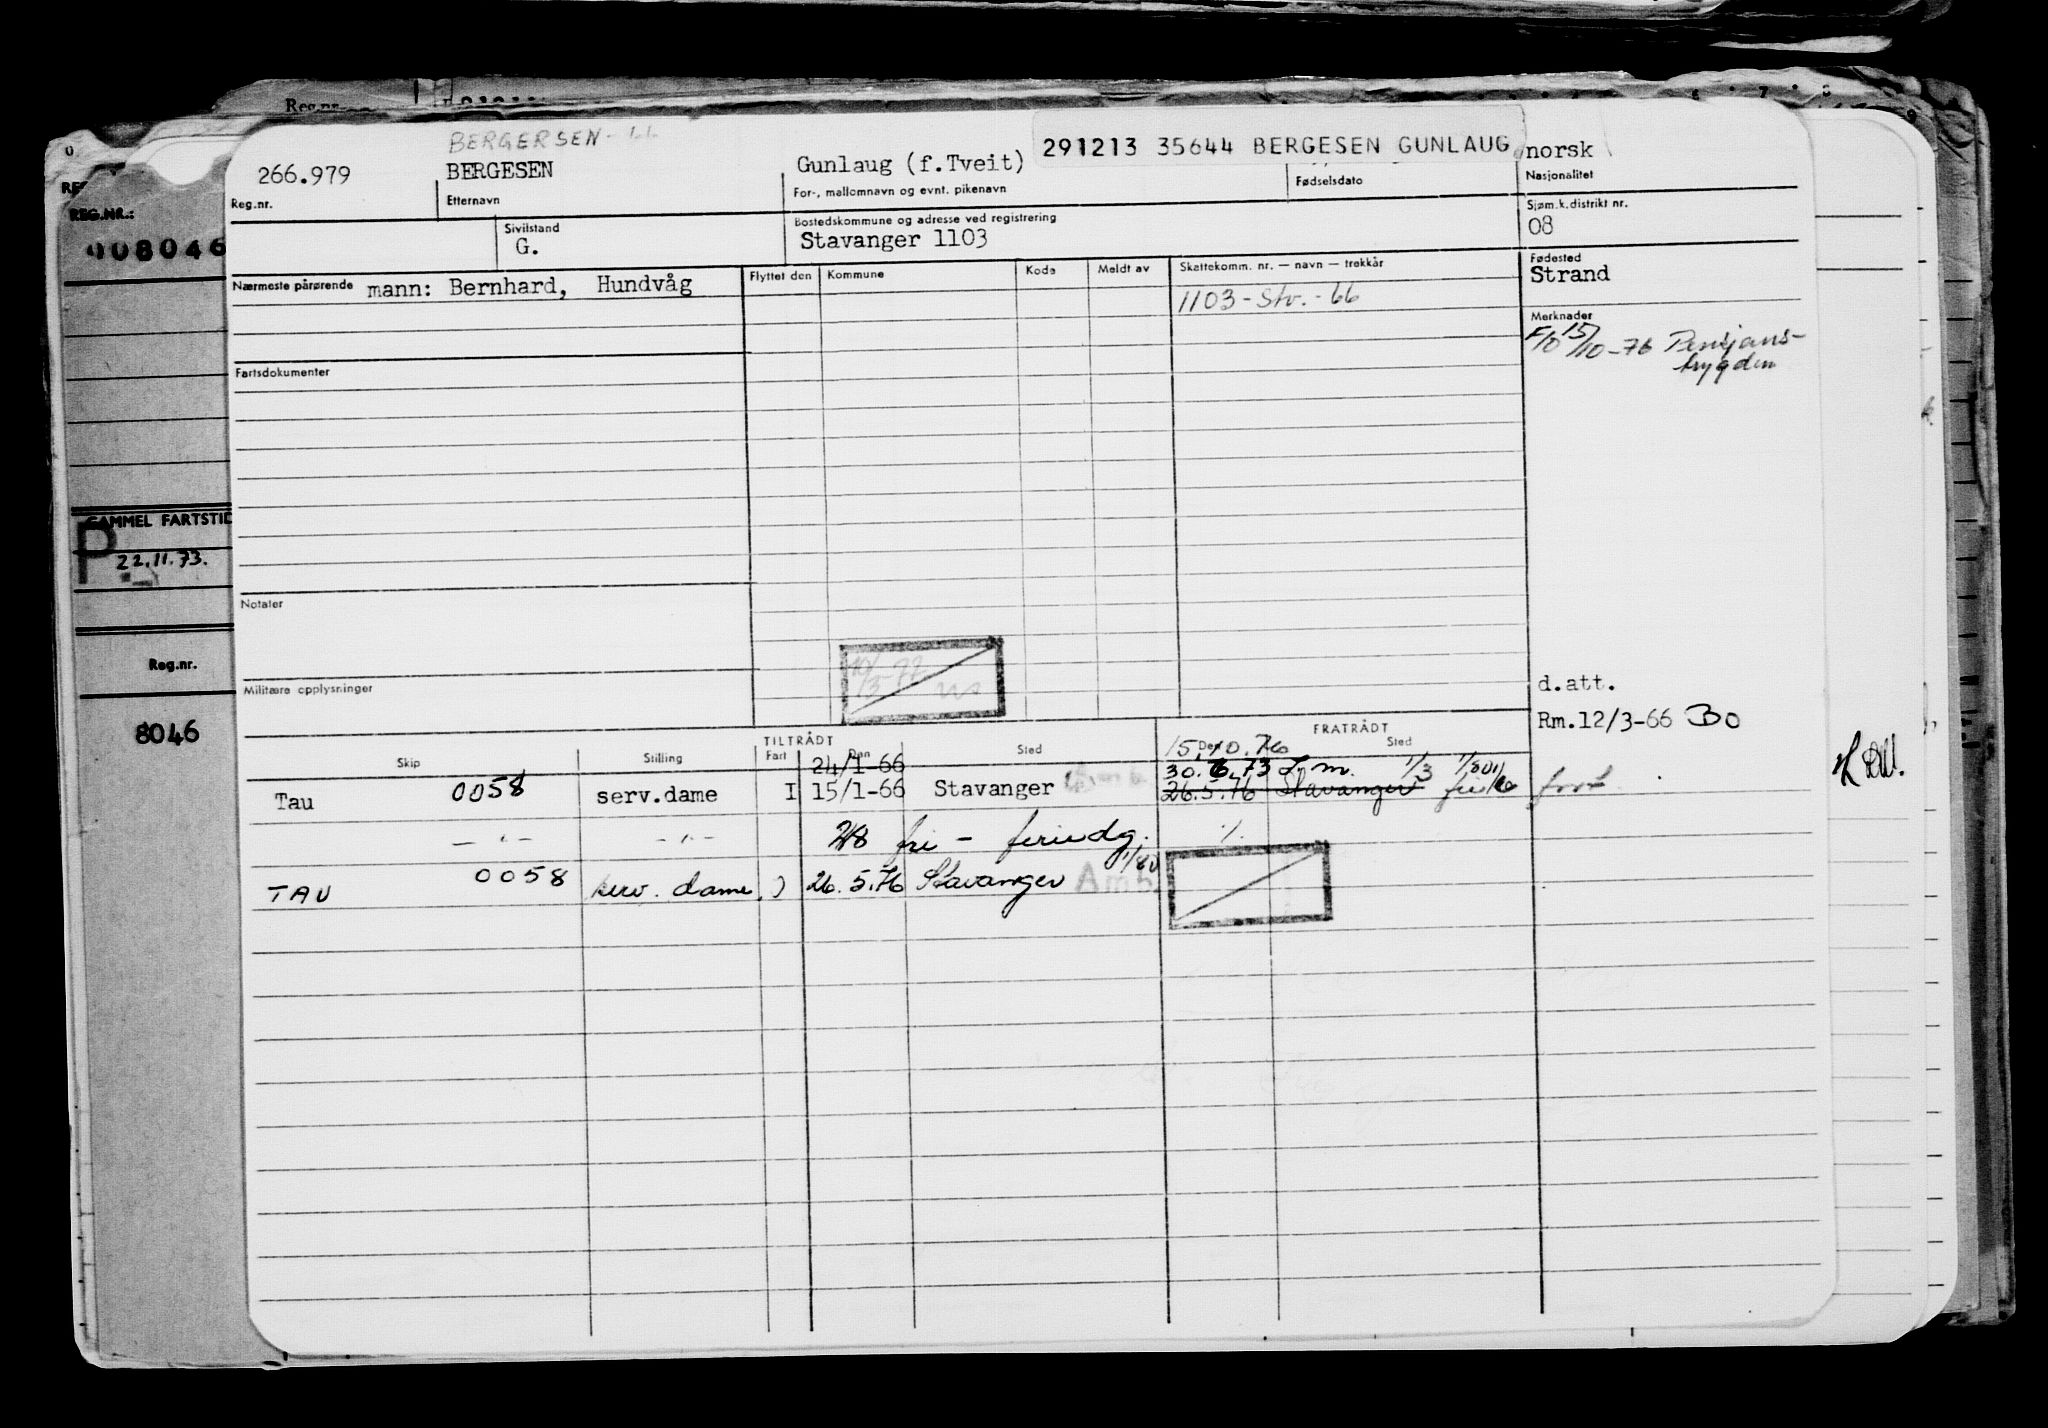 BERGERSEN-66
266.979 BERGESEN Gunlaug (f.Tveit) 291213 35644 BERGESEN GUNLAUG norsk
Reg.nr. Etternavn For-, mellomnavn og evnt. pikenavn Fødselsdato Nasjonalitet
Sivilstand Bostedskommune og adresse ved registrering Sjøm.k.distrikt nr.
G. Stavanger 1103 08
Nærmeste pårørende mann: Bernhard, Hundvåg Flyttet den Kommune Kode Meldt av Skattekomm. nr. — navn — trekkår Fødested
Strand
1103-Stv.-66
Merknader
F/O 15/10-76 Pensjons-
trygden
Fartsdokumenter
Notater
Militære opplysninger
10/3-72
d.att.
Rm.12/3-66 BO
TILTRÅDT FRATRÅDT
Skip Stilling Fart Den Sted Den Sted
15.10.76
24/1-66 30.6.73 L.m. 1/3
Tau 0058 serv.dame I 15/1-66 Stavanger 26.5.76 Stavanger
—"— —"— 28 fri - feriedg. ./.
TAU 0058 serv. dame 26.5.76 Stavanger Amb.
REG.NR.:
008046
GAMMEL FARTSTID
P 22.11.73.
Reg.nr.
8046
Reg.nr.